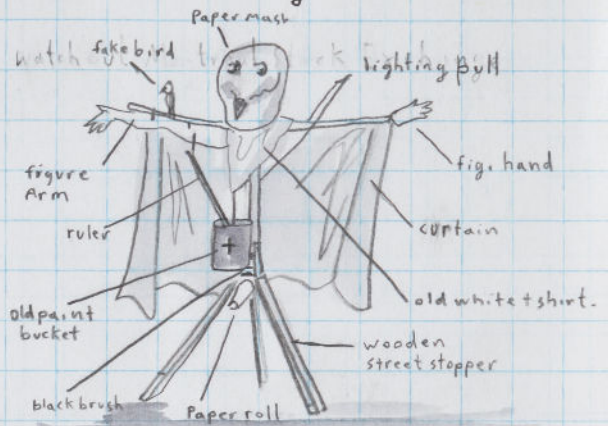 Paper mask
fake bird
lighting pull
figure
Arm
fig. hand
ruler
curtain
old paint
bucket
old white t shirt.
wooden
street stopper
black brush
Paper roll